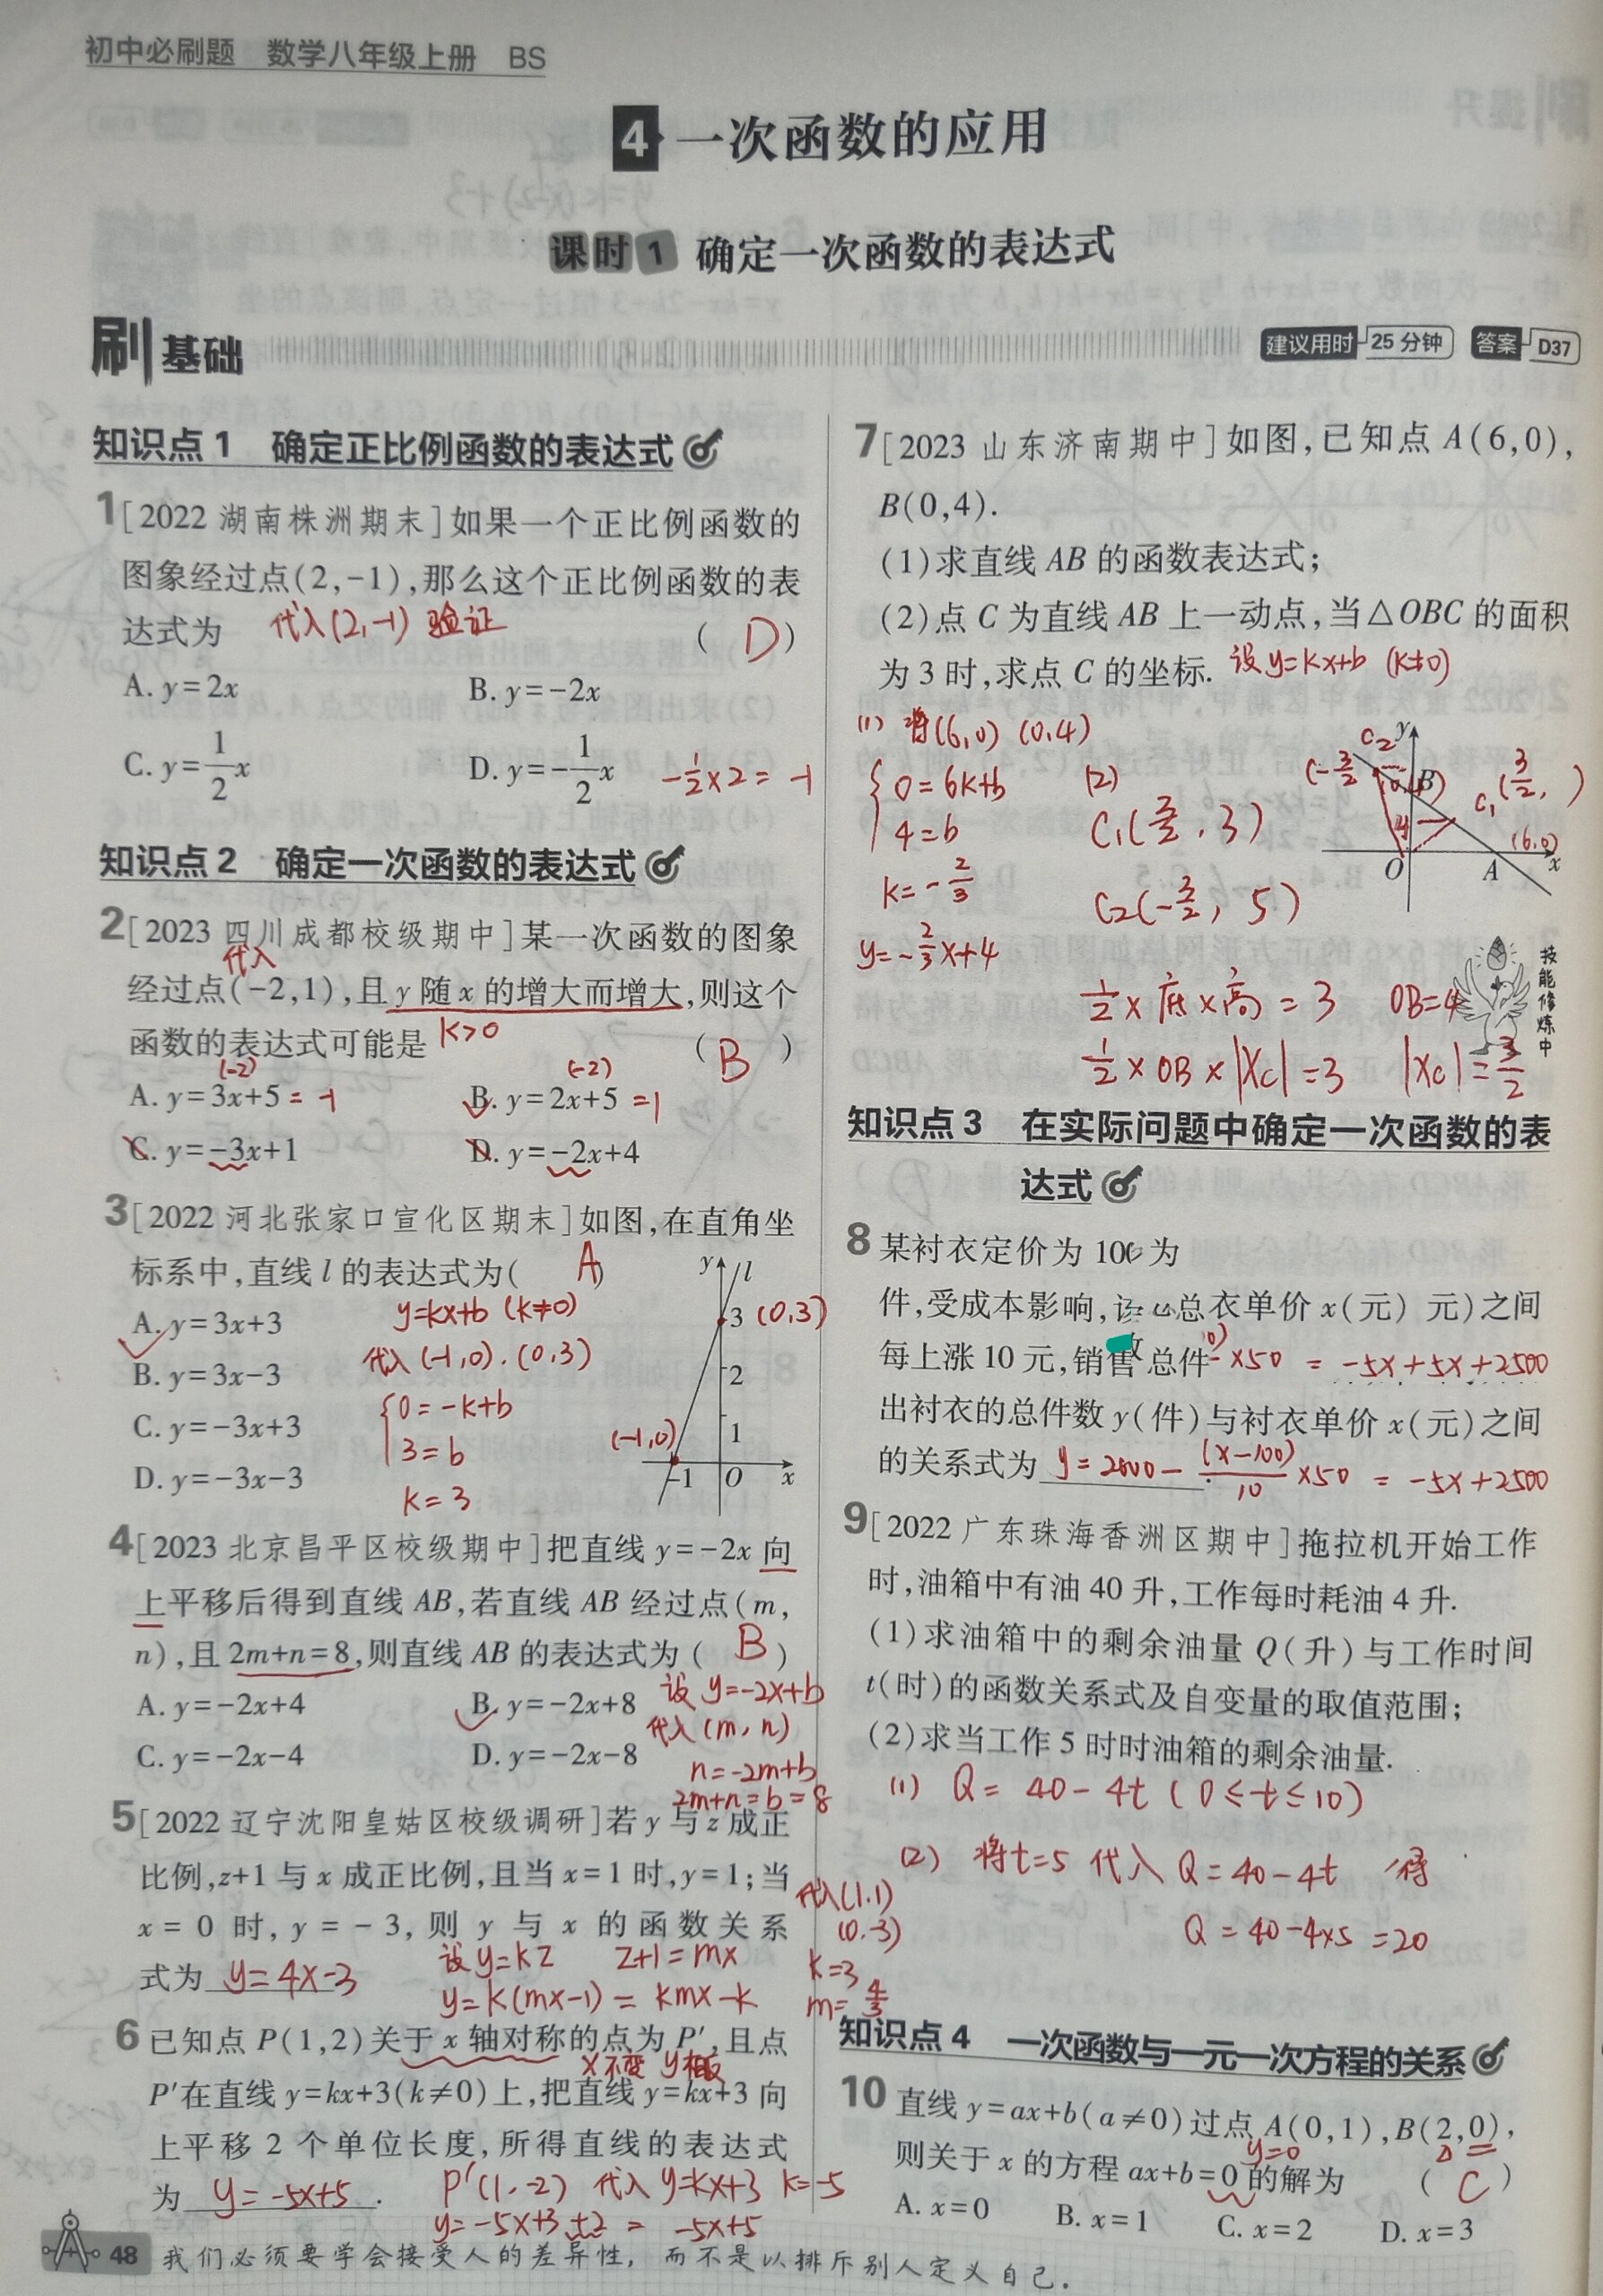 初中必刷题 数学八年级上册 BS
4 一次函数的应用
课时1 确定一次函数的表达式
刷基础
建议用时 25分钟 答案 D37
知识点1 确定正比例函数的表达式
1[2022 湖南株洲期末]如果一个正比例函数的
图象经过点(2,-1),那么这个正比例函数的表
达式为 代入(2,-1) 验证 ( D )
A. y=2x B. y=-2x
C. y=1/2x D. y=-1/2x -1/2×2=-1
知识点2 确定一次函数的表达式
2[2023 四川成都校级期中]某一次函数的图象
代入
经过点(-2,1),且y随x的增大而增大,则这个
函数的表达式可能是 K>0 ( B )
(-2) (-2)
A. y=3x+5 =-1 B. y=2x+5 =1
C. y=-3x+1 D. y=-2x+4
3[2022 河北张家口宣化区期末]如图,在直角坐
标系中,直线l的表达式为( A )
A. y=3x+3 y=kx+b (k≠0)
B. y=3x-3 代入(-1,0).(0,3)
C. y=-3x+3 0=-k+b
3=b
D. y=-3x-3 k=3
y l
3 (0,3)
2
1
(-1,0)
-1 O x
4[2023 北京昌平区校级期中]把直线y=-2x向
上平移后得到直线AB,若直线AB经过点(m,
n),且2m+n=8,则直线AB的表达式为( B )
A. y=-2x+4 B. y=-2x+8 设y=-2x+b
代入(m,n)
C. y=-2x-4 D. y=-2x-8 n=-2m+b
2m+n=b=8
5[2022 辽宁沈阳皇姑区校级调研]若y与z成正
比例,z+1与x成正比例,且当x=1时,y=1;当
x=0时,y=-3,则y与x的函数关系
式为 y=4x-3 设y=kz z+1=mx
y=k(mx-1)=kmx-k
代入(1.1)
(0.-3)
k=3
m=4/3
6 已知点P(1,2)关于x轴对称的点为P′,且点
x不变 y相反
P′在直线y=kx+3(k≠0)上,把直线y=kx+3向
上平移2个单位长度,所得直线的表达式
为 y=-5x+5 . P′(1.-2) 代入y=kx+3 k=-5
y=-5x+3+2= -5x+5
48 我们必须要学会接受人的差异性,而不是以排斥别人定义自己.
7[2023 山东济南期中]如图,已知点A(6,0),
B(0,4).
(1)求直线AB的函数表达式;
(2)点C为直线AB上一动点,当△OBC的面积
为3时,求点C的坐标. 设y=kx+b (k≠0)
(1) 将(6,0) (0,4)
0=6k+b
4=b
k=-2/3
y=-2/3x+4
(2)
C1(3/2,3)
C2(-3/2,5)
C2 y
(-3/2 B C1(3/2, )
4 (6,0)
O A x
1/2×底×高=3 OB=4
1/2×OB×|Xc|=3 |Xc|=3/2
技能修炼中
知识点3 在实际问题中确定一次函数的表
达式
8 某衬衣定价为100 为
件,受成本影响, 总衣单价x(元) 元)之间
每上涨10元,销售 总件 ×50 = -5x+5x+2500
出衬衣的总件数y(件)与衬衣单价x(元)之间
的关系式为 y=2000-(x-100)/10×50 = -5x+2500
9[2022 广东珠海香洲区期中]拖拉机开始工作
时,油箱中有油40升,工作每时耗油4升.
(1)求油箱中的剩余油量Q(升)与工作时间
t(时)的函数关系式及自变量的取值范围;
(2)求当工作5时时油箱的剩余油量.
(1) Q=40-4t (0≤t≤10)
(2) 将t=5 代入 Q=40-4t 得
Q=40-4×5=20
知识点4 一次函数与一元一次方程的关系
10 直线y=ax+b(a≠0)过点A(0,1),B(2,0),
y=0
则关于x的方程ax+b=0的解为 ( C )
A. x=0 B. x=1 C. x=2 D. x=3